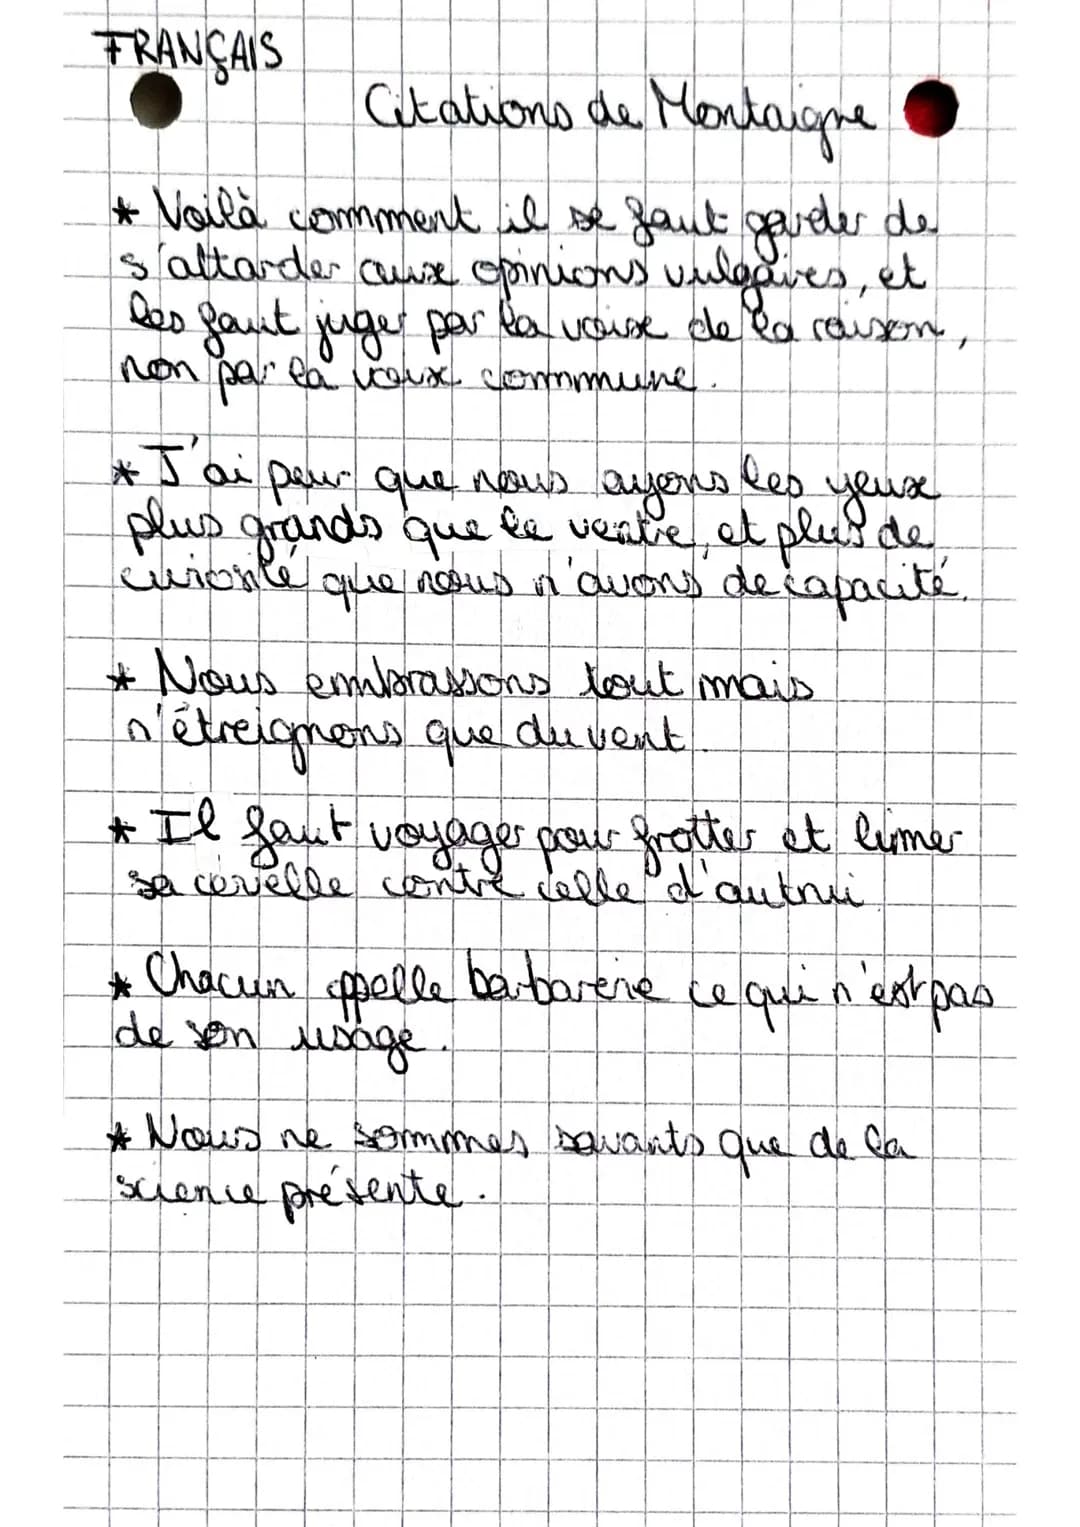 FRANÇAIS
Citations de Montaigne
* Voilà comment il se faut garder de
s'attarder aux opinions vulgaires, et
les faut juger par la voix de la raison,
non par la voix commune.
* J'ai peur que nous ayons les yeux
plus grands que le ventre, et plus de
curiosité que nous n'avons de capacité.
* Nous embrassons tout mais
n'étreignons que du vent.
* Il faut voyager pour frotter et limer
sa cervelle contre celle d'autrui
* Chacun appelle barbarerie ce qui n'est pas
de son usage.
* Nous ne sommes savants que de la
science présente.